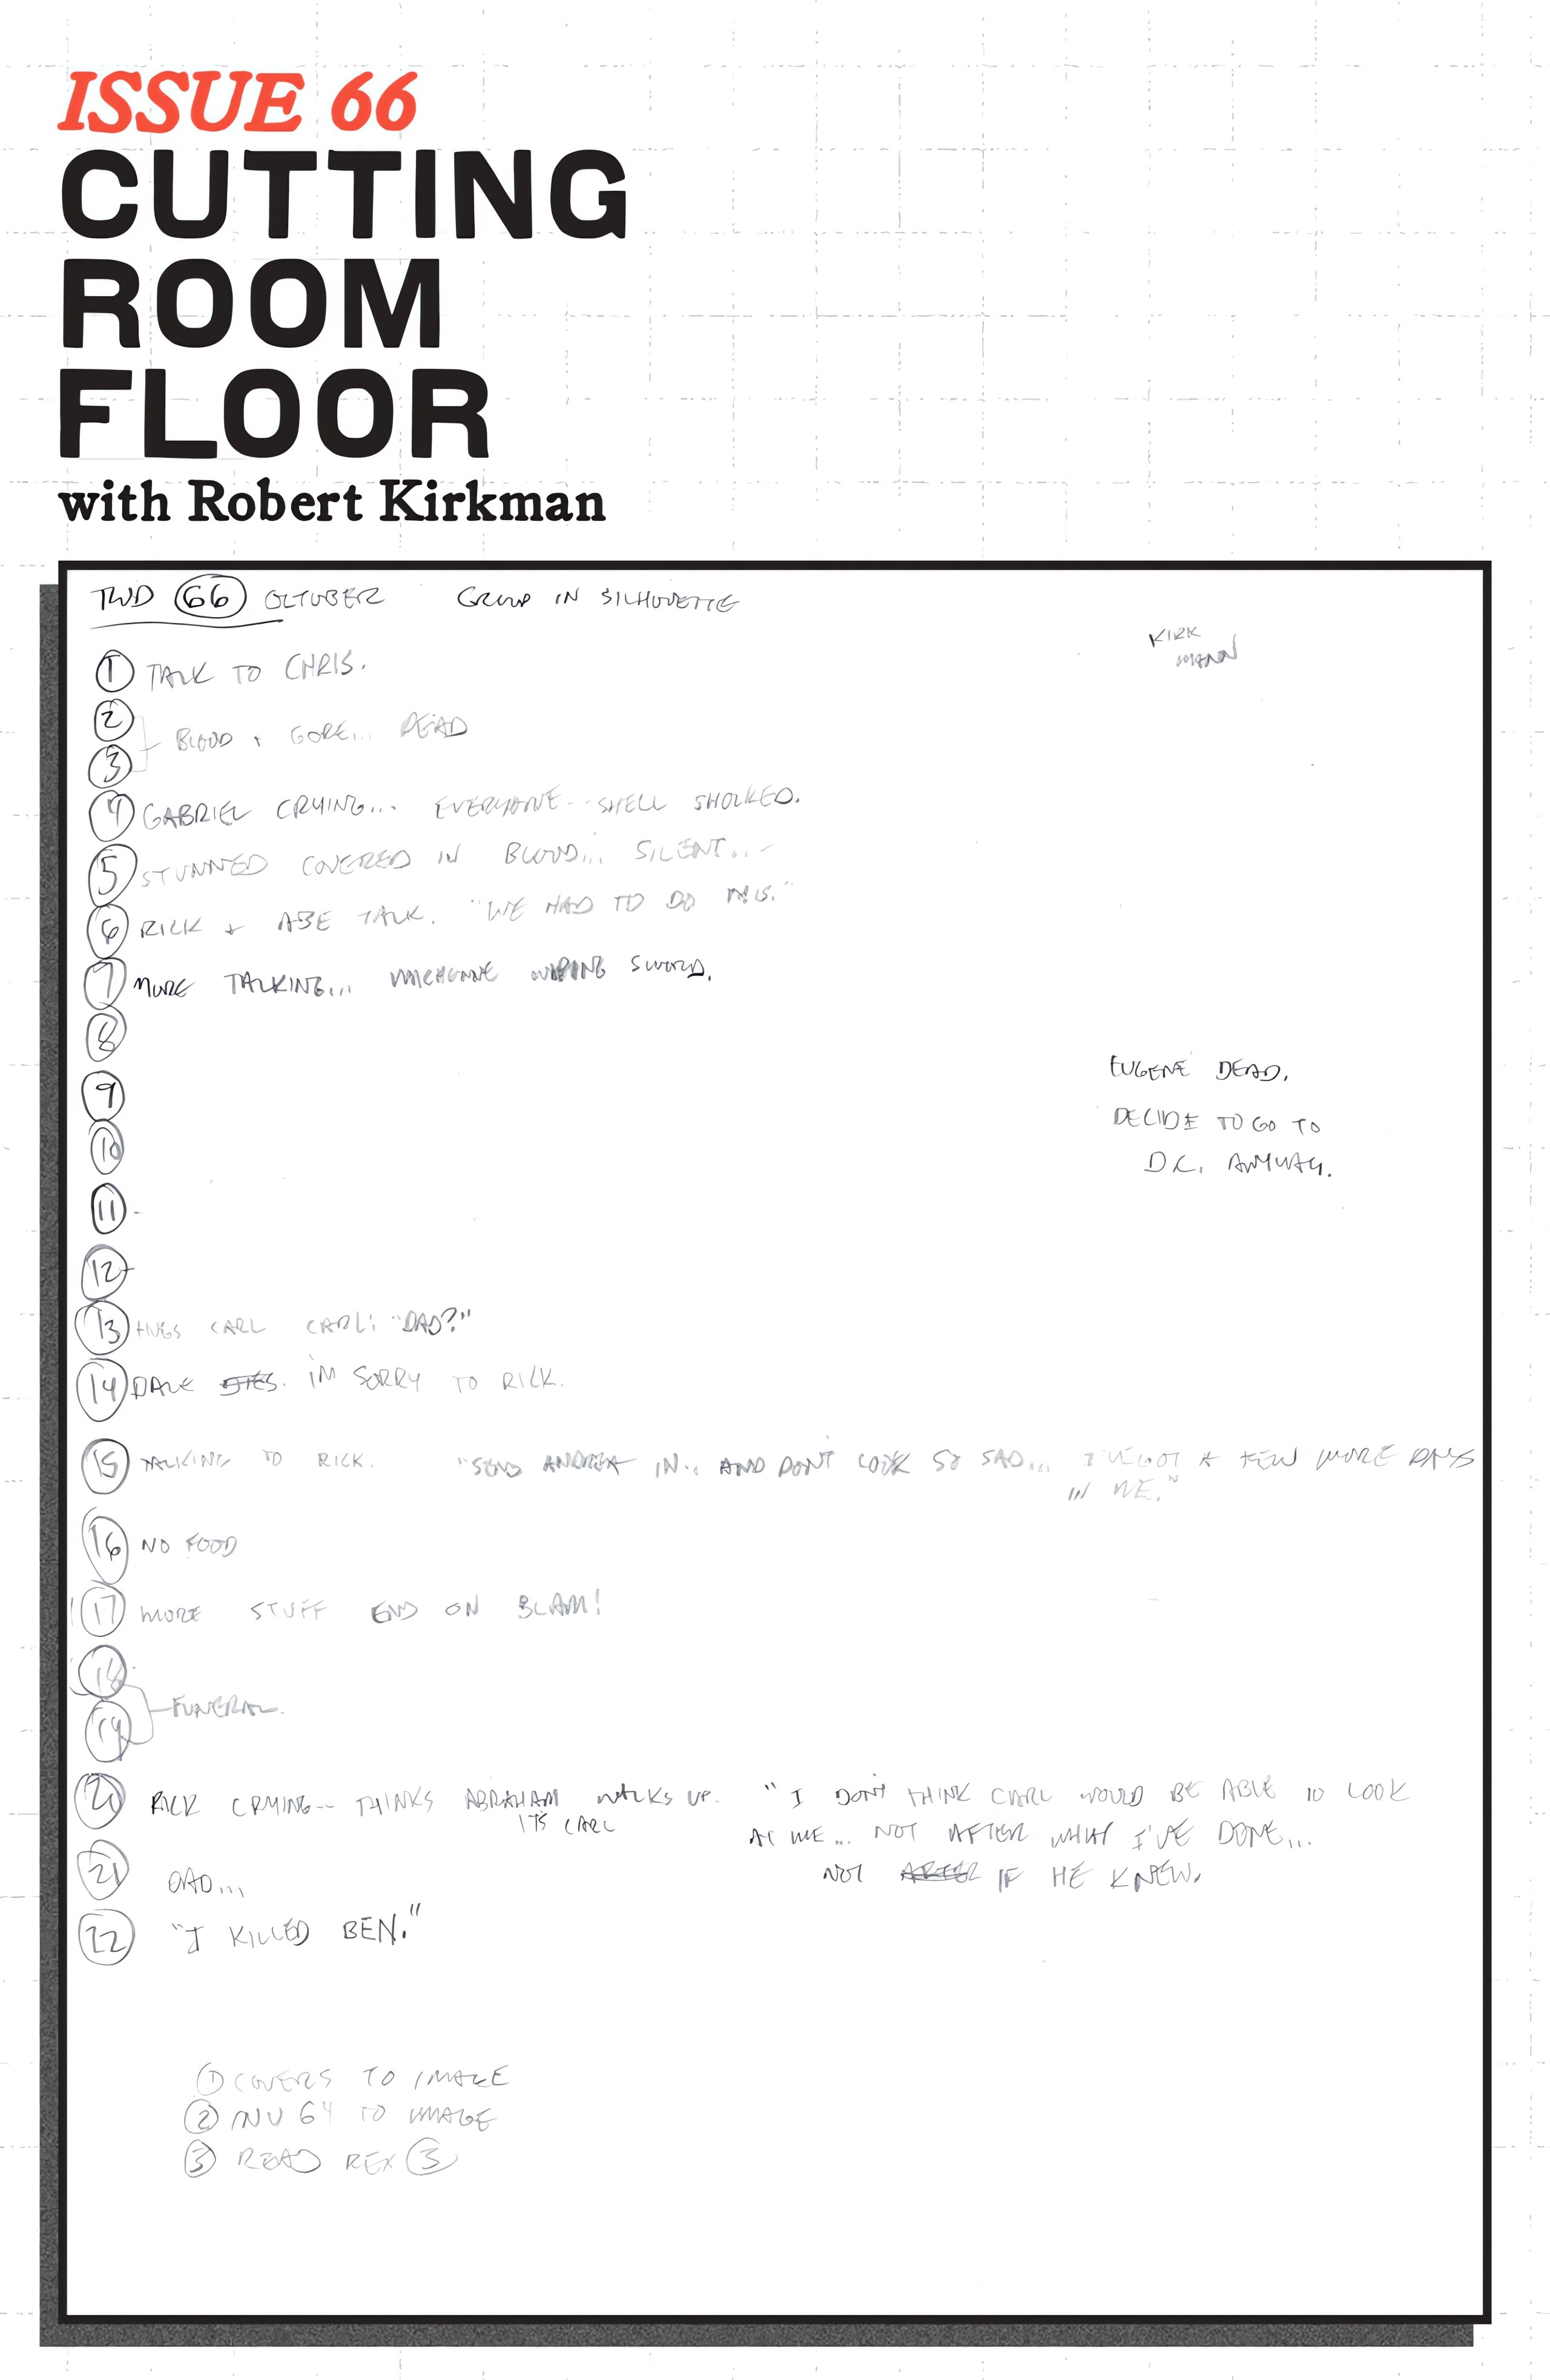 ISSUE 66
CUTTING
ROOM
FLOOR
with Robert Kirkman
TWD 66 OCTOBER GROUP IN SILHOUETTE
KIRK
MANN
1 TALK TO CHRIS.
2
BLOOD + GORE... DEAD
3
4 GABRIEL CRYING... EVERYONE... SHELL SHOCKED.
5 STUNNED COVERED IN BLOOD... SILENT...
6 RICK + ABE TALK. "WE HAD TO DO THIS."
7 MORE TALKING... MICHONNE WIPING SWORD.
8
EUGENE DEAD.
9
DECIDE TO GO TO
10
D.C. ANYWAY.
11
12
13 HUGS CARL CARL: "DAD?"
14 DALE DIES. I'M SORRY TO RICK.
15 TALKING TO RICK. "SEND ANDREA IN... AND DON'T LOOK SO SAD... I'VE GOT A FEW MORE DAYS
IN ME."
16 NO FOOD
17 MORE STUFF END ON BLAM!
18
FUNERAL.
19
20 RICK CRYING... THINKS ABRAHAM WALKS UP. "I DON'T THINK CARL WOULD BE ABLE TO LOOK
IT'S CARL AT ME... NOT AFTER WHAT I'VE DONE...
NOT AFTER IF HE KNEW.
21 DAD...
22 "I KILLED BEN."
1 COVERS TO IMAGE
2 INV 64 TO IMAGE
3 READ REX 3